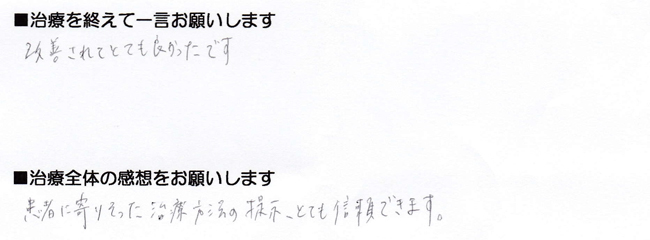 ■治療を終えて一言お願いします
改善されてとても良かったです
■治療全体の感想をお願いします
患者に寄りそった治療方法の提示、とても信頼できます。